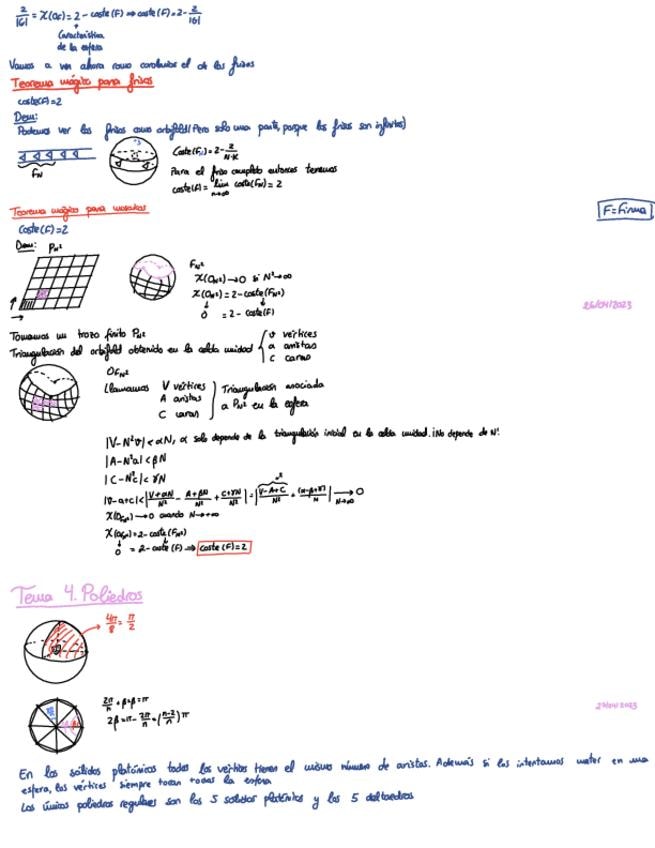 2/|G| = X(O_F) = 2 - coste(F) ⇒ coste(F) = 2 - 2/|G|
Característica
de la esfera
Vamos a ver ahora como los frisos
Teorema mágico para frisos
coste(F)=2
Dem:
Podemos ver los frisos como orbifold (Pero solo una parte, porque los frisos son infinitos)
F_N
Coste(F_N) = 2 - 2/(N·K)
Para el friso completo entonces tenemos
coste(F) = lim coste(F_N) = 2
n→∞
Teorema mágico para mosaicos
F = Firma
Coste(F)=2
Dem: P_N²
F_N²
X(O_N²) → 0 si N² → ∞
X(O_N²) = 2 - coste(F_N²)
0 = 2 - coste(F)
26/04/2023
Tomamos un trozo finito P_N²
Triangulación del orbifold obtenido en la celda unidad { v vértices
a aristas
c caras
O_F_N²
Llamamos V vértices
A aristas
C caras
} Triangulación asociada
a P_N² en la esfera
|V-N²v| < αN, α solo depende de la triangulación inicial en la celda unidad. ¡No depende de N!
|A-N²a| < βN
|C-N²c| < γN
|v-a+c| < |(V+αN)/N² - (A+βN)/N² + (C+γN)/N²| = |(V-A+C)/N² + (α-β+γ)/N| → 0
N→∞
X(O_F_N²) → 0 cuando N → +∞
X(O_F_N²) = 2 - coste(F_N²)
0 = 2 - coste(F) ⇒ coste(F)=2
Tema 4. Poliedros
4π/8 = π/2
2π/n + β+β = π
2β = π - 2π/n = ((n-2)/n)π
En los sólidos platónicos todos los vértices tienen el mismo número de aristas. Además si los intentamos meter en una
esfera, los vértices siempre tocan todos la esfera
Los únicos poliedros regulares son los 5 sólidos platónicos y los 5 deltaedros